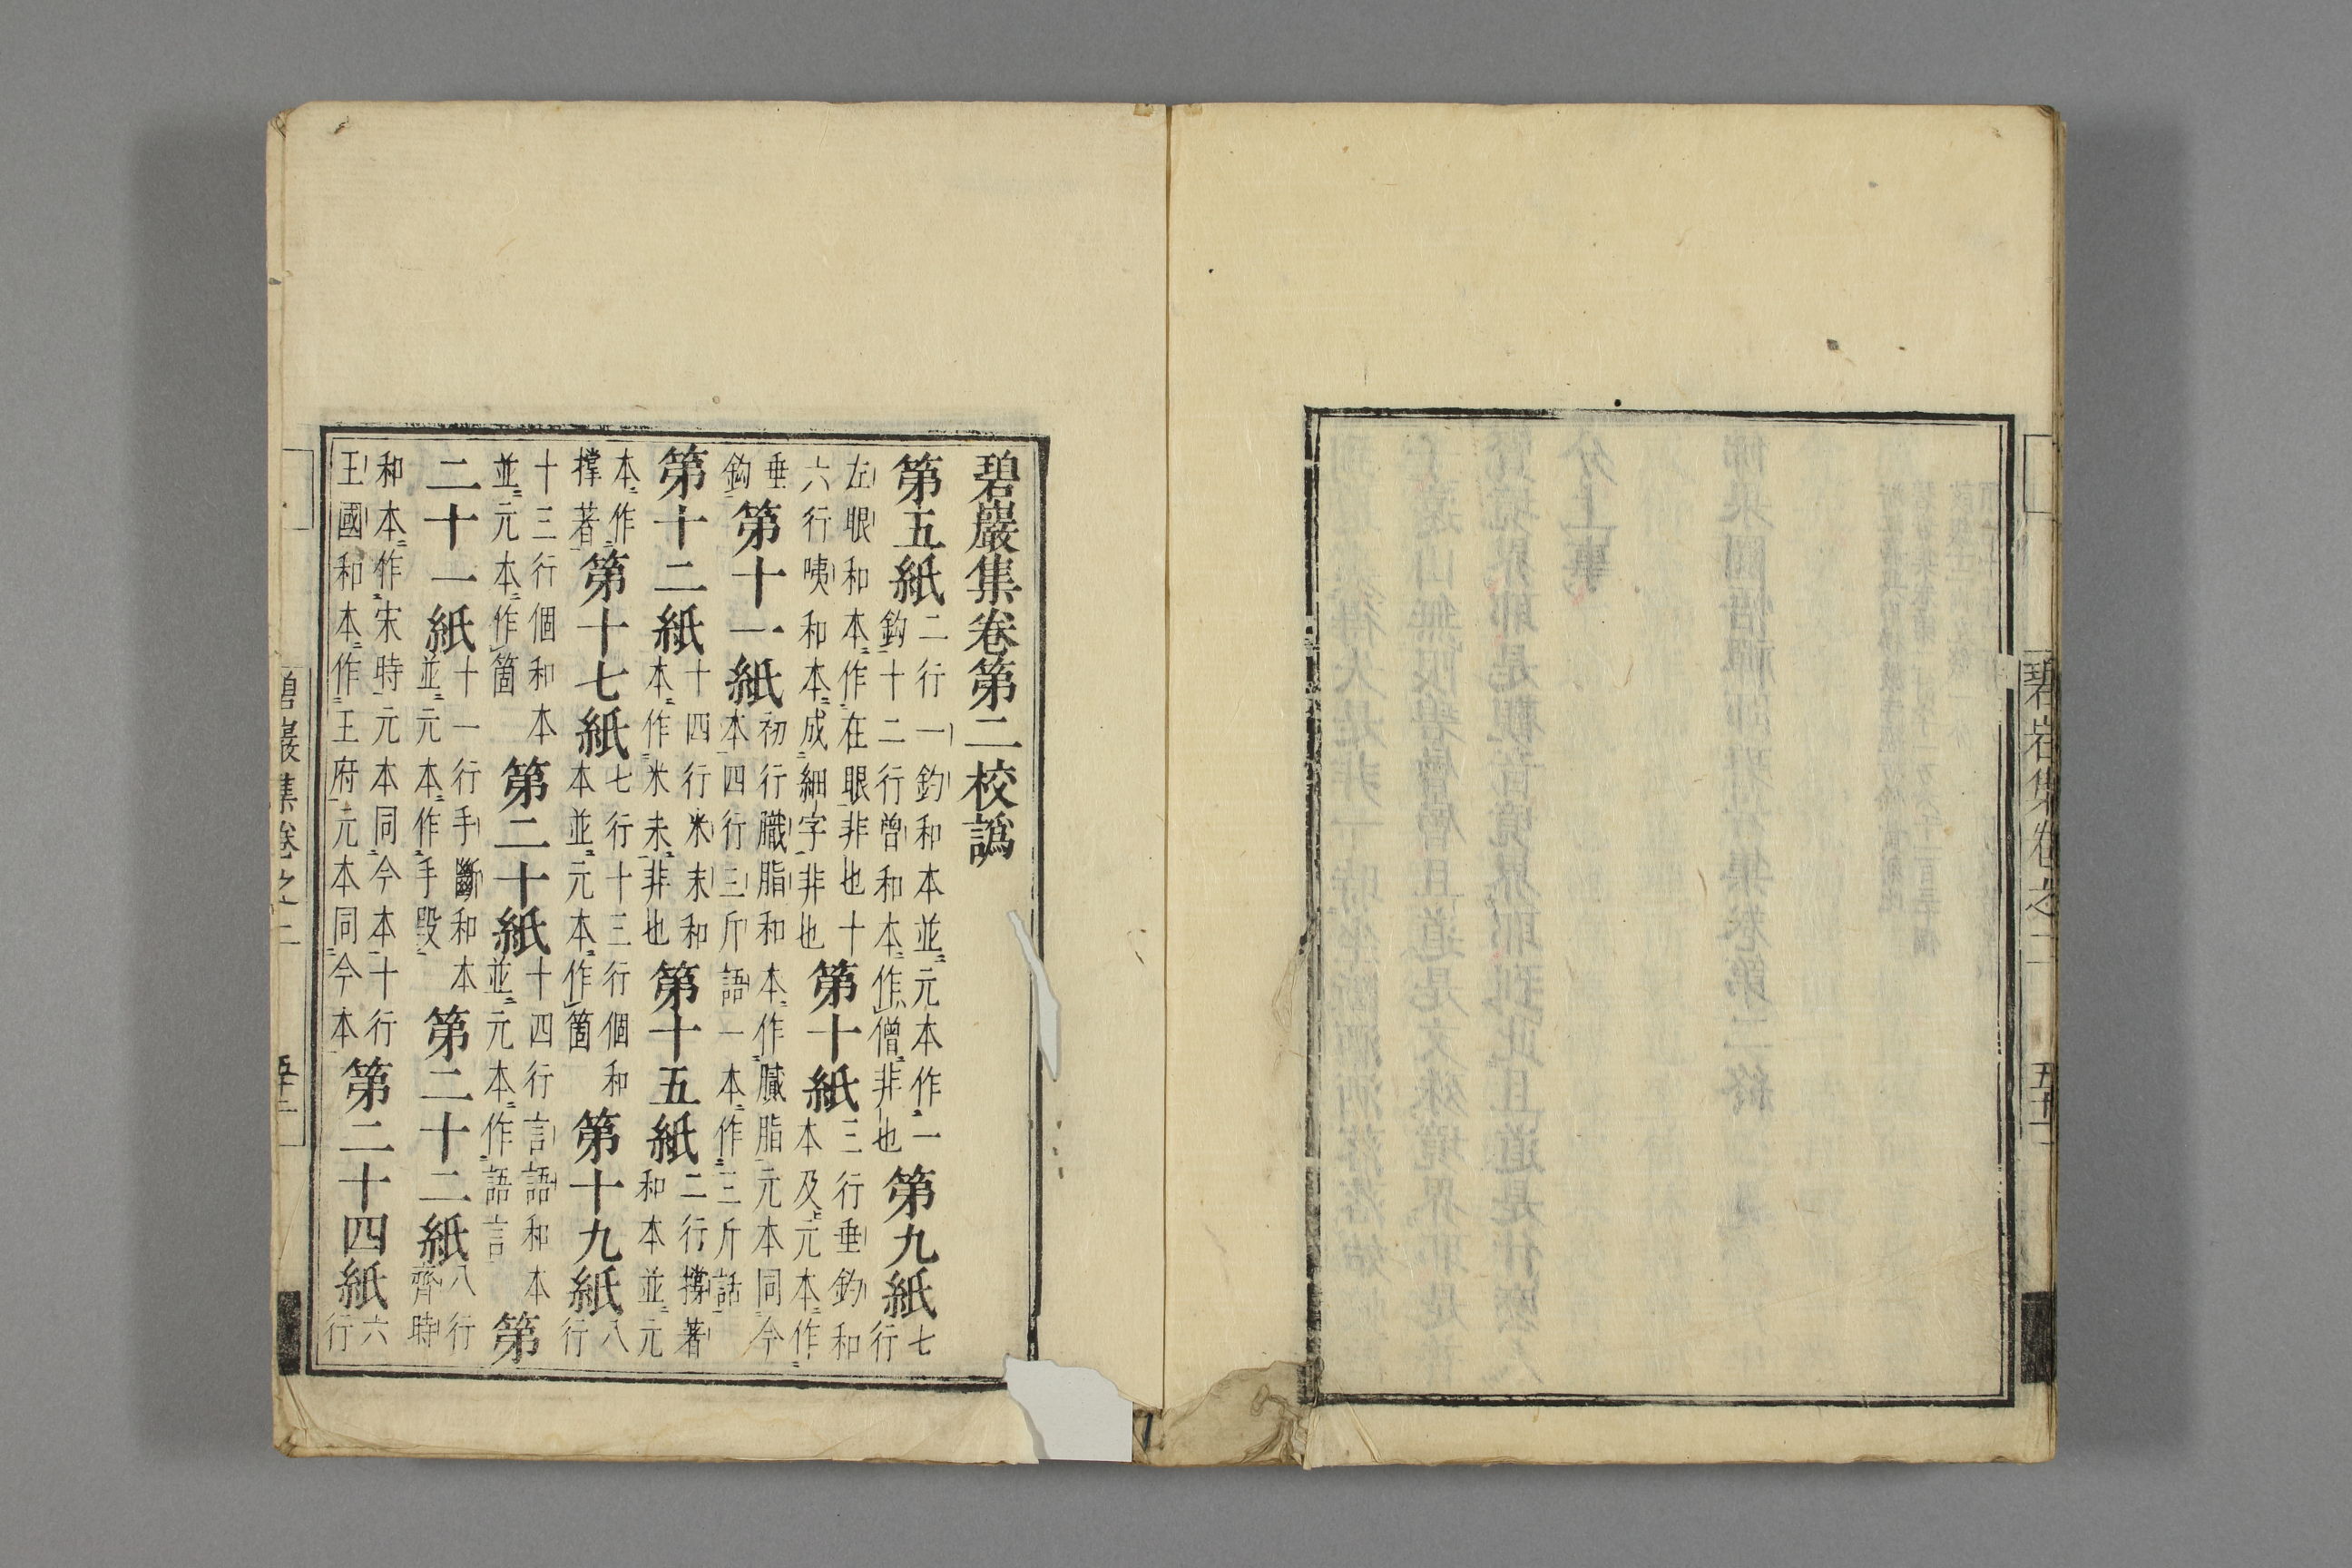 碧巖集卷第二校譌
第五紙二行一鈞和本並元本作一鈞十二行曾和本作僧非也第九紙七行
左眼和本作在眼非也十六行咦和本成細字非也第十紙三行垂鈞和本及元本作
垂鈎第十一紙初行膱脂和本作臟脂元本同今本四行三斤語一本作三斤話
第十二紙十四行米末和本作米未非也第十五紙二行撐著和本並元
本作撑著第十七紙七行十三行個和本並元本作箇第十九紙八行
十三行個和本並元本作箇第二十紙十四行言語和本並元本作語言第
二十一紙十一行手斷和本並元本作手毀第二十二紙八行齊時
和本作宋時元本同今本十行王國和本作王府元本同今本第二十四紙六行
碧巖集卷之二
碧岩集卷之二
五十一